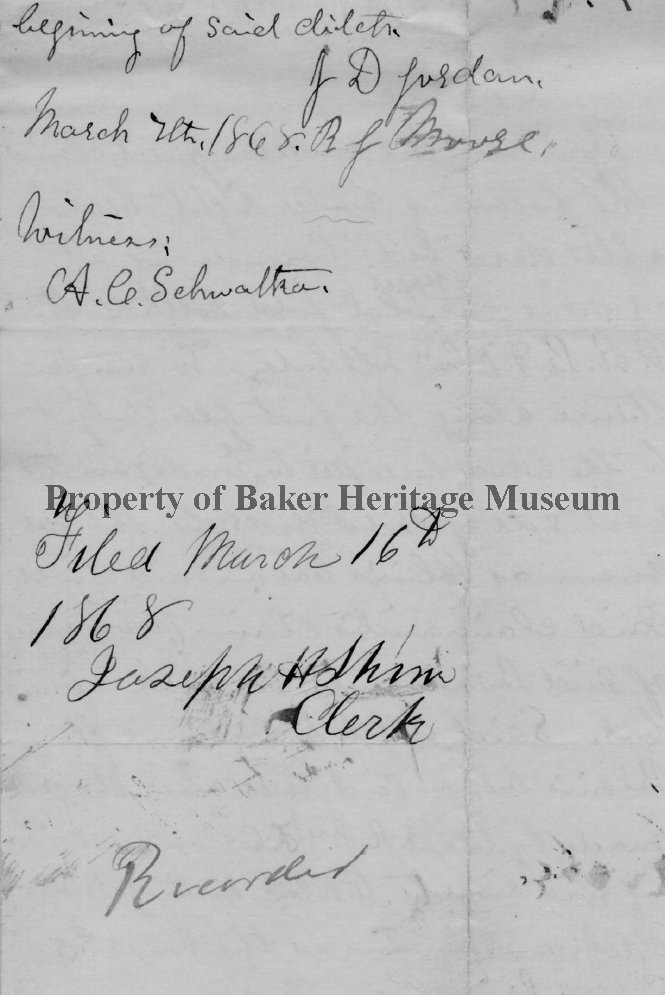 begining of said ditch.
J D Jordan.
March 7th, 1868. R J Moore.
Witness;
A. C. Schwatka.
Property of Baker Heritage Museum
Filed March 16th
1868
Joseph H Shinn
Clerk
Recorded